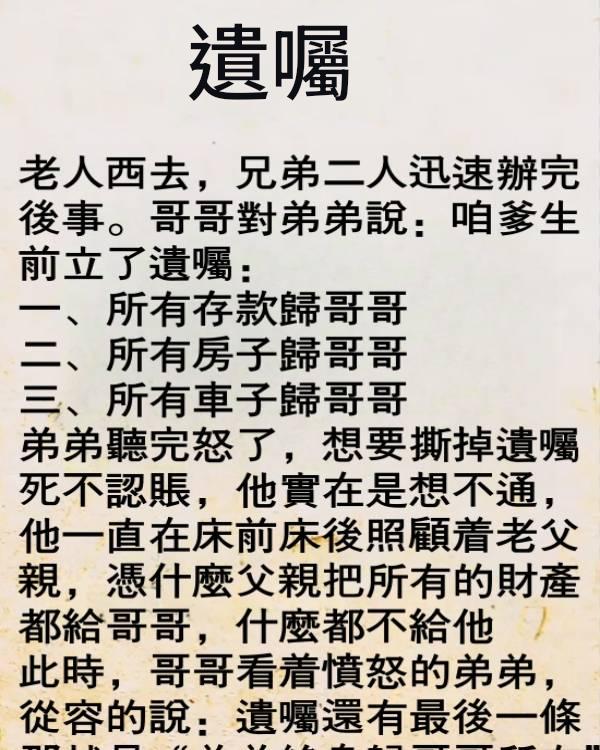 遺囑
老人西去，兄弟二人迅速辦完
後事。哥哥對弟弟說：咱爹生
前立了遺囑：
一、所有存款歸哥哥
二、所有房子歸哥哥
三、所有車子歸哥哥
弟弟聽完怒了，想要撕掉遺囑
死不認賬，他實在是想不通，
他一直在床前床後照顧着老父
親，憑什麼父親把所有的財產
都給哥哥，什麼都不給他
此時，哥哥看着憤怒的弟弟，
從容的說：遺囑還有最後一條